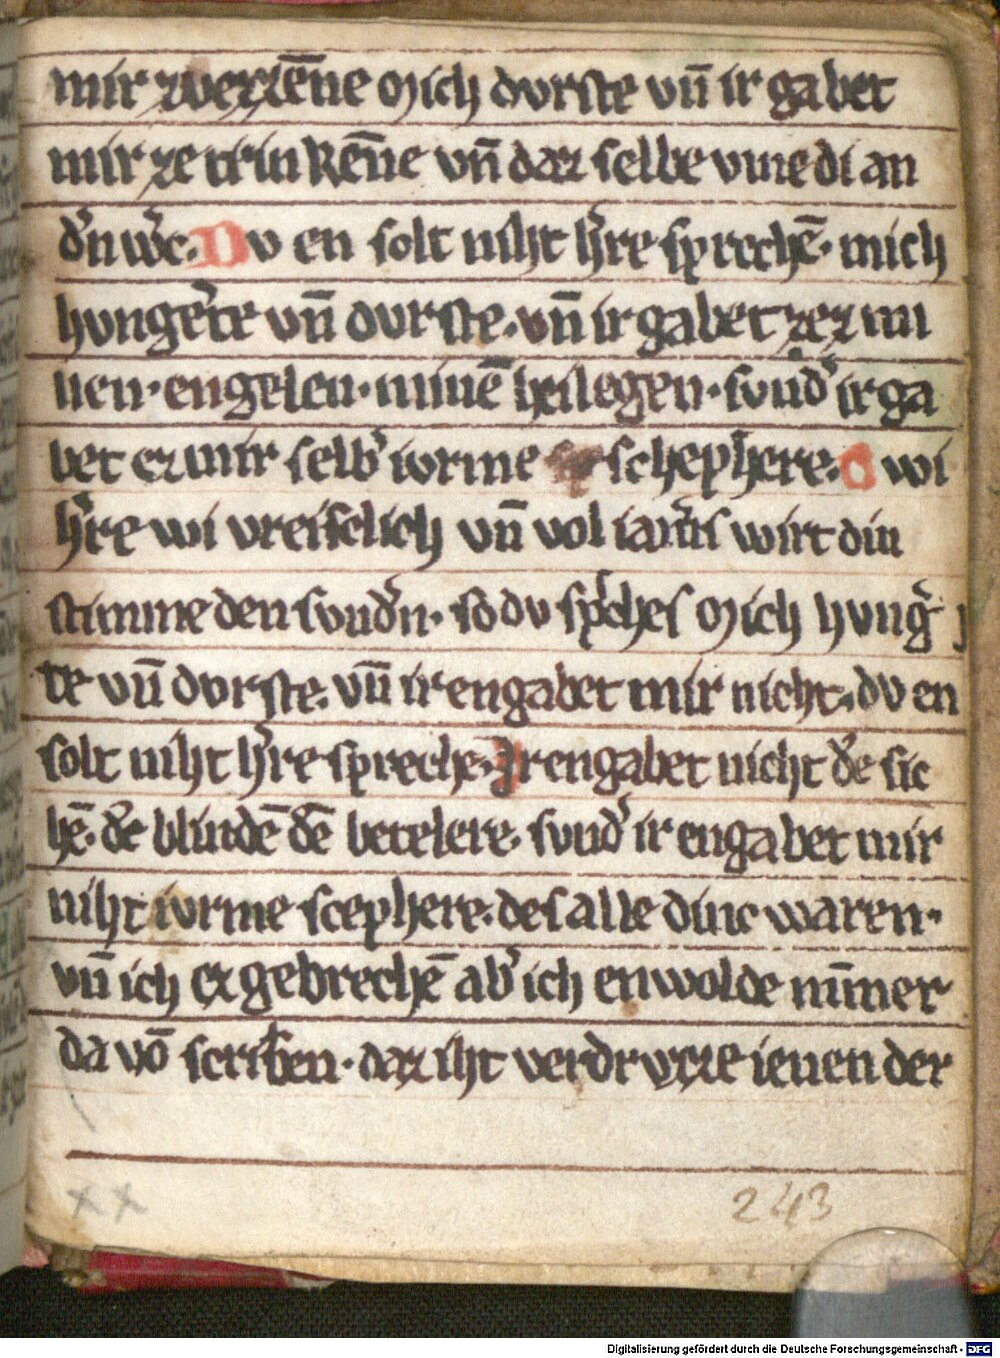 mir zverzēne Mich dvrste vn̄ ir gabet
mir ze trin kēne vn̄ daz selbe vme di an
d'n w'c. Dv en solt niht h're sprechē. mich
hvnge'te vn̄ dvrste. vn̄ ir gabet zez mi
nen. engelen. minē heilegen. svnd' ir ga
bet ez mir selb' ivrme schephere. O wi
h're wi vreiselich vn̄ vol iam's wirt din
stimme den svnd'n. so dv sp'ches Mich hvng'
te vn̄ dvrste. vn̄ ir engabet mir nicht. dv en
solt niht h're spreche. Ir engabet nicht de' sic
hē. de' blindē dē betelere. svnd' ir engabet mir
niht ivrme scephere. des alle dinc waren.
vn̄ ich ez gebrechē ab' ich enwolde nim̄er
da vō scriben. daz iht verdrvzze ienen der
xx
243
Digitalisierung gefördert durch die Deutsche Forschungsgemeinschaft - DFG